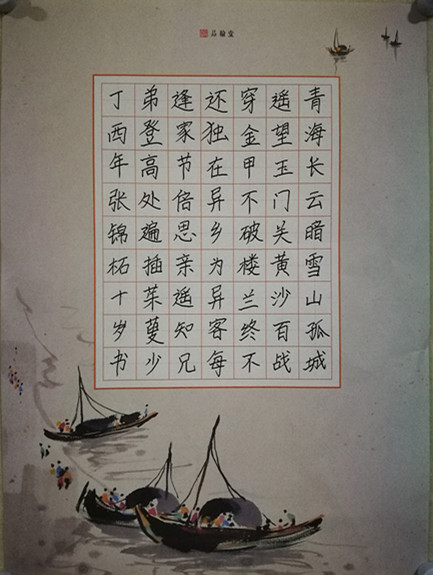 品翰堂
青海长云暗雪山孤城
遥望玉门关黄沙百战
穿金甲不破楼兰终不
还独在异乡为异客每
逢家节倍思亲遥知兄
弟登高处遍插茱萸少
丁西年张锦柘十岁书